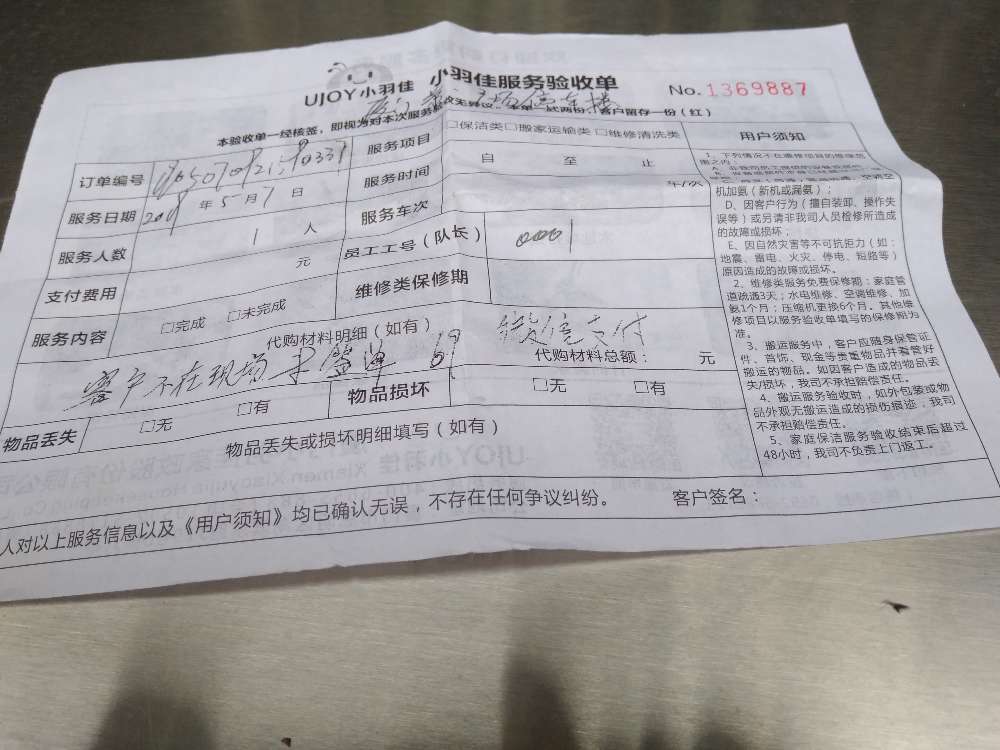 UJOY小羽佳 小羽佳服务验收单
No.1369887
本验收单一经核签，即视为对本次服务
客户留存一份（红）
订单编号
服务项目 □保洁类□搬家运输类 □维修清洗类
服务日期 年5月7日
服务时间 自 至 止
服务人数 1 人
服务车次 车/次
支付费用 元
员工工号（队长）
服务内容 □完成 □未完成
维修类保修期
代购材料明细（如有）
客户不在现场未签单
微信支付
代购材料总额： 元
物品丢失 □无 □有
物品损坏 □无 □有
物品丢失或损坏明细填写（如有）
人对以上服务信息以及《用户须知》均已确认无误，不存在任何争议纠纷。 客户签名：
用户须知
1、下列情况不在
机加氨（新机或漏氨）；
D、因客户行为（擅自装卸、操作失
误等）或另请非我司人员检修所造成
的故障或损坏；
E、因自然灾害等不可抗拒力（如：
地震、雷电、火灾、停电、短路等）
原因造成的故障或损坏。
2、维修类服务免费保修期：家庭管
道疏通3天；水电维修、空调维修、加
氨1个月；压缩机更换6个月。其他维
修项目以服务验收单填写的保修期为
准。
3、搬运服务中，客户应随身保管证
件、首饰、现金等贵重物品并看管好
搬运的物品。如因客户造成的物品丢
失/损坏，我司不承担赔偿责任。
4、搬运服务验收时，如外包装或物
品外观无搬运造成的损伤痕迹，我司
不承担赔偿责任。
5、家庭保洁服务验收结束后超过
48小时，我司不负责上门返工。